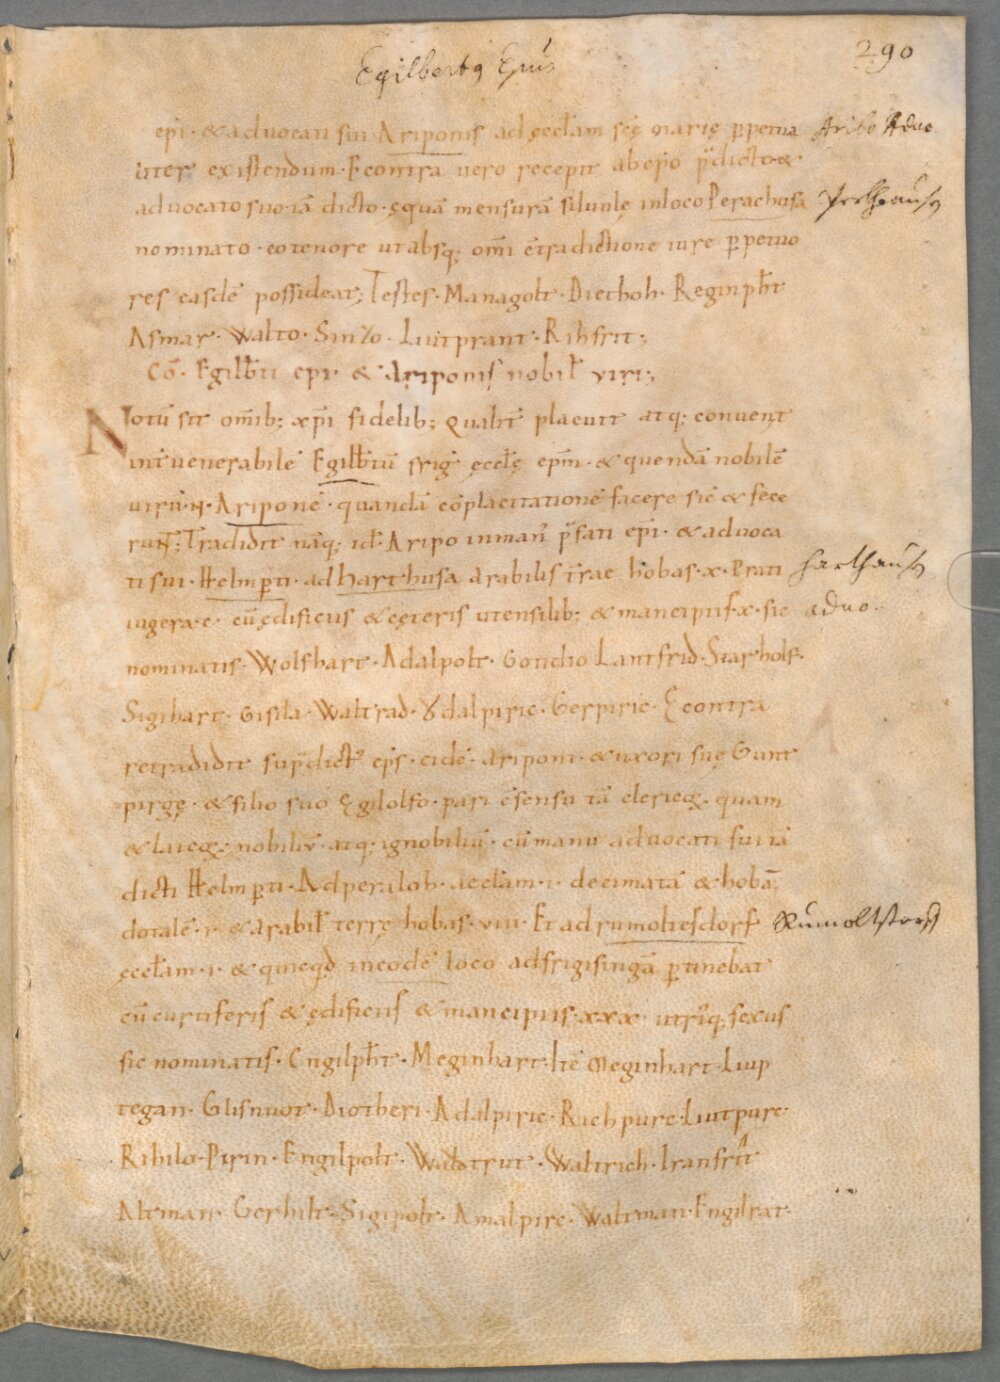 Egilbertꝰ Epūs
290
ep̄i · & aduocati sui Ariponis ad ęcc̄lam sc̄ę marię ꝑpetua Aribo Aduo.
liter existendum · Econtra uero recepit ab ep̄o p̄dicto &
aduocato suo iā dicto · ęquā mensurā siluulę in loco Perachusa Perlhausꝫ
nominato · eo tenore ut absq; om̄i c̄tradictione iure ꝑpetuo
res easdē possideat; Testes · Managolt · Diethoh · Reginp̄ht
Asmar · Walto · Sinzo · Liutprant · Rihfrit;
Cō · Egilb̄ti epi · & Ariponis nobil̄ viri;
Notū sit om̄ib; xp̄i fidelib; qualit̄ placuit atq; conuenit
int̄ uenerabilē Egilb̄tū friḡ ęccl̄ę ep̄m · & quendā nobilē
uirū · N · Áriponē · quandā cōplacitationē facere sic & fece
runt; Tradidit nāq; id̄ · Aripo in manꝰ p̄fati ep̄i · & aduoca
ti sui · Helmꝑti · ad harthusa arabilis t̄rae hobas · x · Prati harthausꝫ
iugera · c · cū ędificiis & ceteris utensilib; & mancipiis · x · sic aduo.
nominatis · Wolfhart · Adalpolt · Goticho Lantfrid · Starholf ·
Sigihart · Gisila · Waltrad · Ɣdalpiric · Gerpiric · Econtra
retradidit sup̄dictꝰ ep̄s · eidē · ariponi · & uxori suę Gunt
pirgę · & filio suo Egilolfo · pari c̄sensu tā clericoꝝ · quam
& laicoꝝ; nobiliū · atq; ignobiliū · cū manu aduocati sui iā
dicti Helmꝑti · Ad peraloh · ęccl̄am · i · decimatā & hobā
dotalē · i · & arabil̄ terrę hobas · viii · Et ad rumoltesdorf Rumoltstorff
ęccl̄am · i · & quicqd̄ in eodē loco ad frigisingā ꝑtinebat
cū curtiferis & ędificiis & mancipiis · xxx · utriꝰq; sexus
sic nominatis · Engilp̄ht · Meginhart · Itē Meginhart · Liup
tegan · Glisnuot · Diotheri · Adalpiric · Richpurc · Liutpurc ·
Rihilo · Pirin · Engilpolt · Waltrut · Waltrich · Iranfrit
Altman · Gerhilt · Sigipolt · Amalpirc · Waltman · Engilrat ·